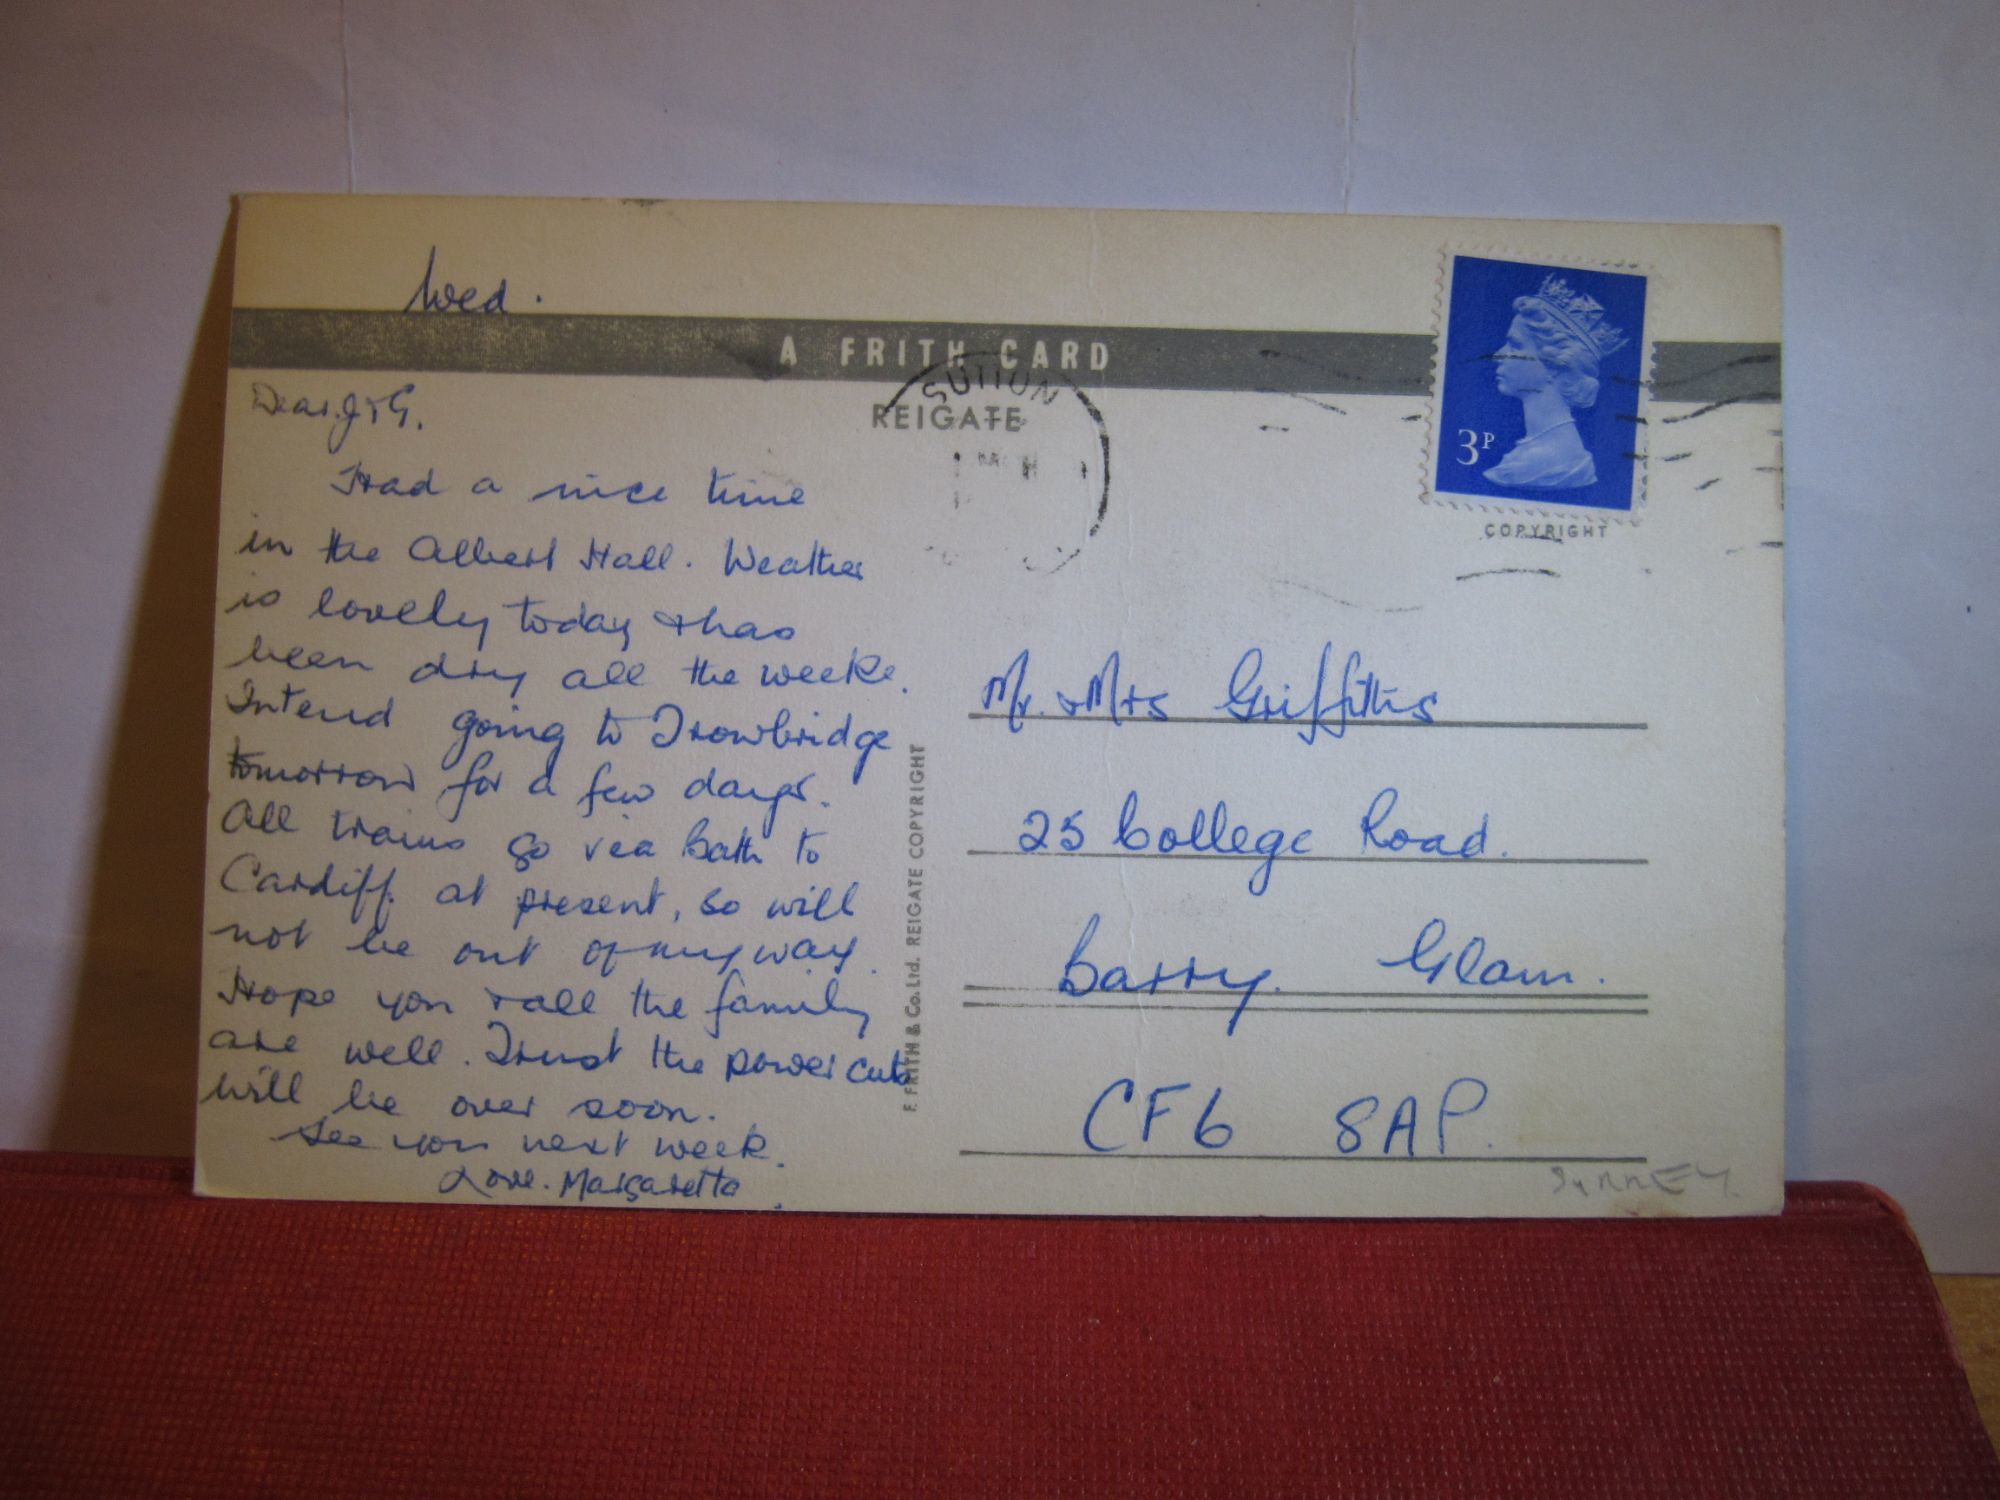 Wed.
A FRITH CARD
SUTTON
REIGATE
3P
COPYRIGHT
Dear J & G.
Had a nice time
in the Albert Hall. Weather
is lovely today & has
been dry all the week.
Intend going to Trowbridge
tomorrow for a few days.
All trains go via Bath to
Cardiff at present, so will
not be out of my way.
Hope you & all the family
are well. Trust the power cuts
will be over soon.
See you next week.
Love. Margaretta
F. FRITH & Co. Ltd. REIGATE COPYRIGHT
Mr. & Mrs Griffiths
25 College Road.
Barry. Glam.
CF6 8AP.
SURREY.